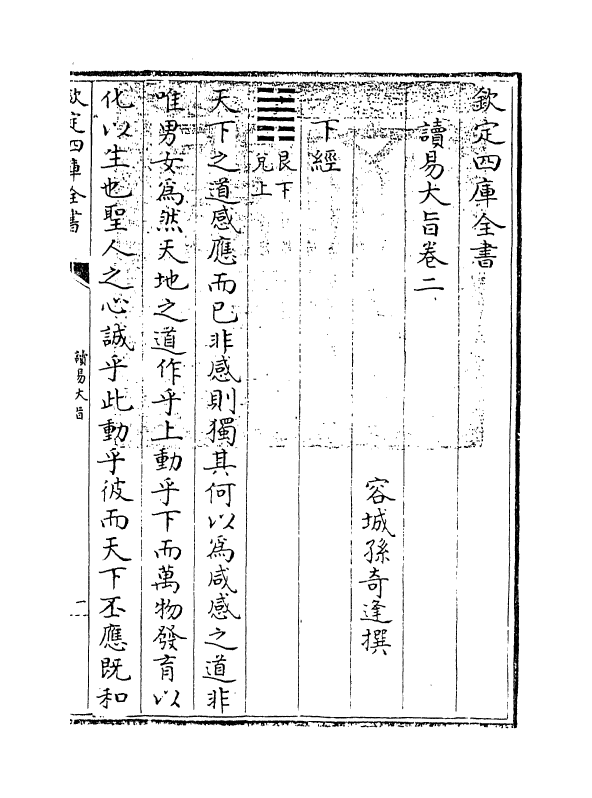 欽定四庫全書
讀易大旨卷二
容城孫奇逢撰
下經
䷞艮下兌上
天下之道感應而已非感則獨其何以為咸感之道非
唯男女為然天地之道作乎上動乎下而萬物發育以
化以生也聖人之心誠乎此動乎彼而天下丕應既和
欽定四庫全書
讀易大旨
一